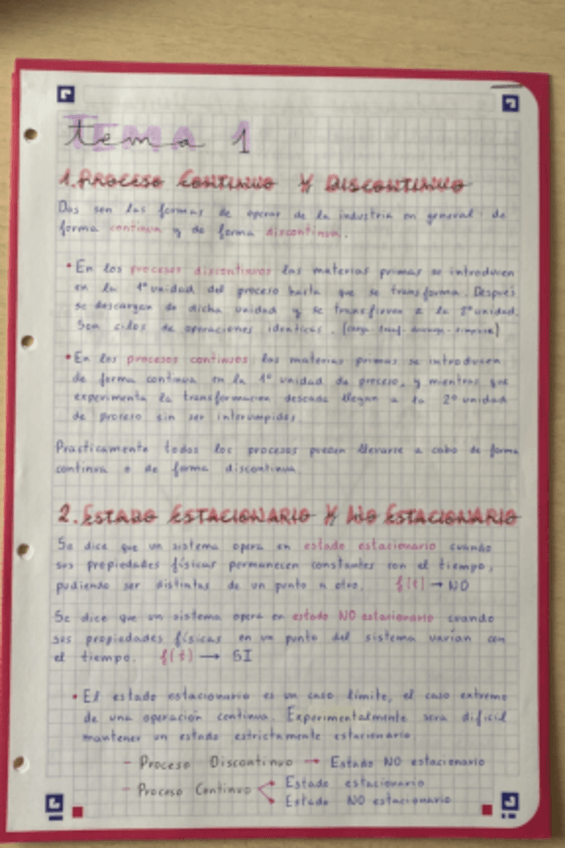 TEMA 1
tema 1
1. PROCESO CONTINUO Y DISCONTINUO
Dos son las formas de operar de la industria en general: de
forma continua y de forma discontinua.
• En los procesos discontinuos las materias primas se introducen
en la 1º unidad del proceso hasta que se transforma. Después
se descargan de dicha unidad y se transfieren a la 2º unidad.
Son ciclos de operaciones identicas. (carga-transf.-descarga-limpieza)
• En los procesos continuos las materias primas se introducen
de forma continua en la 1º unidad de proceso, y mientras que
experimenta la transformación deseada llegan a la 2º unidad
de proceso sin ser interrumpidos.
Practicamente todos los procesos pueden llevarse a cabo de forma
continua o de forma discontinua.
2. ESTADO ESTACIONARIO Y NO ESTACIONARIO
Se dice que un sistema opera en estado estacionario cuando
sus propiedades físicas permanecen constantes con el tiempo,
pudiendo ser distintas de un punto a otro. f(t) → NO
Se dice que un sistema opera en estado NO estacionario cuando
sus propiedades físicas en un punto del sistema varían con
el tiempo. f(t) → SI
• El estado estacionario es un caso límite, el caso extremo
de una operación continua. Experimentalmente sera dificil
mantener un estado estrictamente estacionario.
- Proceso Discontinuo → Estado NO estacionario
- Proceso Continuo
Estado estacionario
Estado NO estacionario